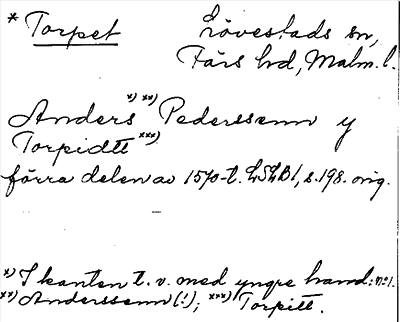 * Torpet Lövestads sn,
Färs hd, Malm. l.
Anders x) xx) Pederssenn y
Torpidtt xxx)
förra delen av 1570-t. LSLB 1, s. 198. orig.
x) I kanten t. v. med yngre hand: n:o 1.
xx) Anderssenn (!); xxx) Torpitt.